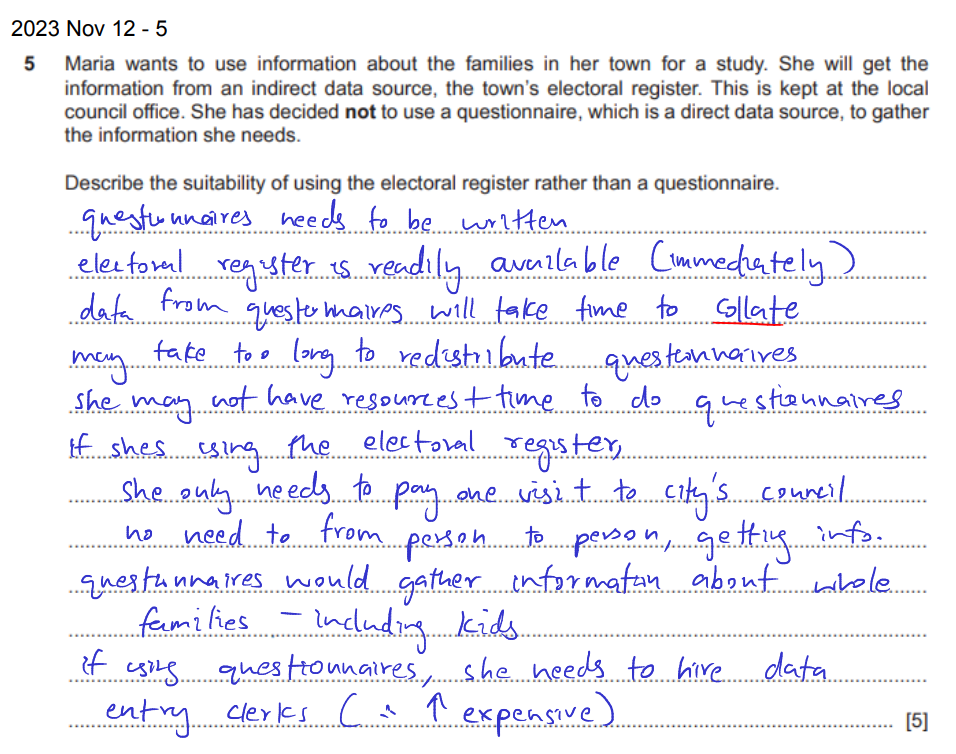 2023 Nov 12 - 5
5 Maria wants to use information about the families in her town for a study. She will get the
information from an indirect data source, the town's electoral register. This is kept at the local
council office. She has decided not to use a questionnaire, which is a direct data source, to gather
the information she needs.
Describe the suitability of using the electoral register rather than a questionnaire.
questionnaires needs to be written
electoral register is readily available (immediately)
data from questionnaires will take time to collate
may take too long to redistribute questionnaires
she may not have resources + time to do questionnaires
if shes using the electoral register,
she only needs to pay one visit to city's council
no need to from person to person, getting info.
questionnaires would gather information about whole
families - including kids
if using questionnaires, she needs to hire data
entry clerks (∴ ↑ expensive)
[5]